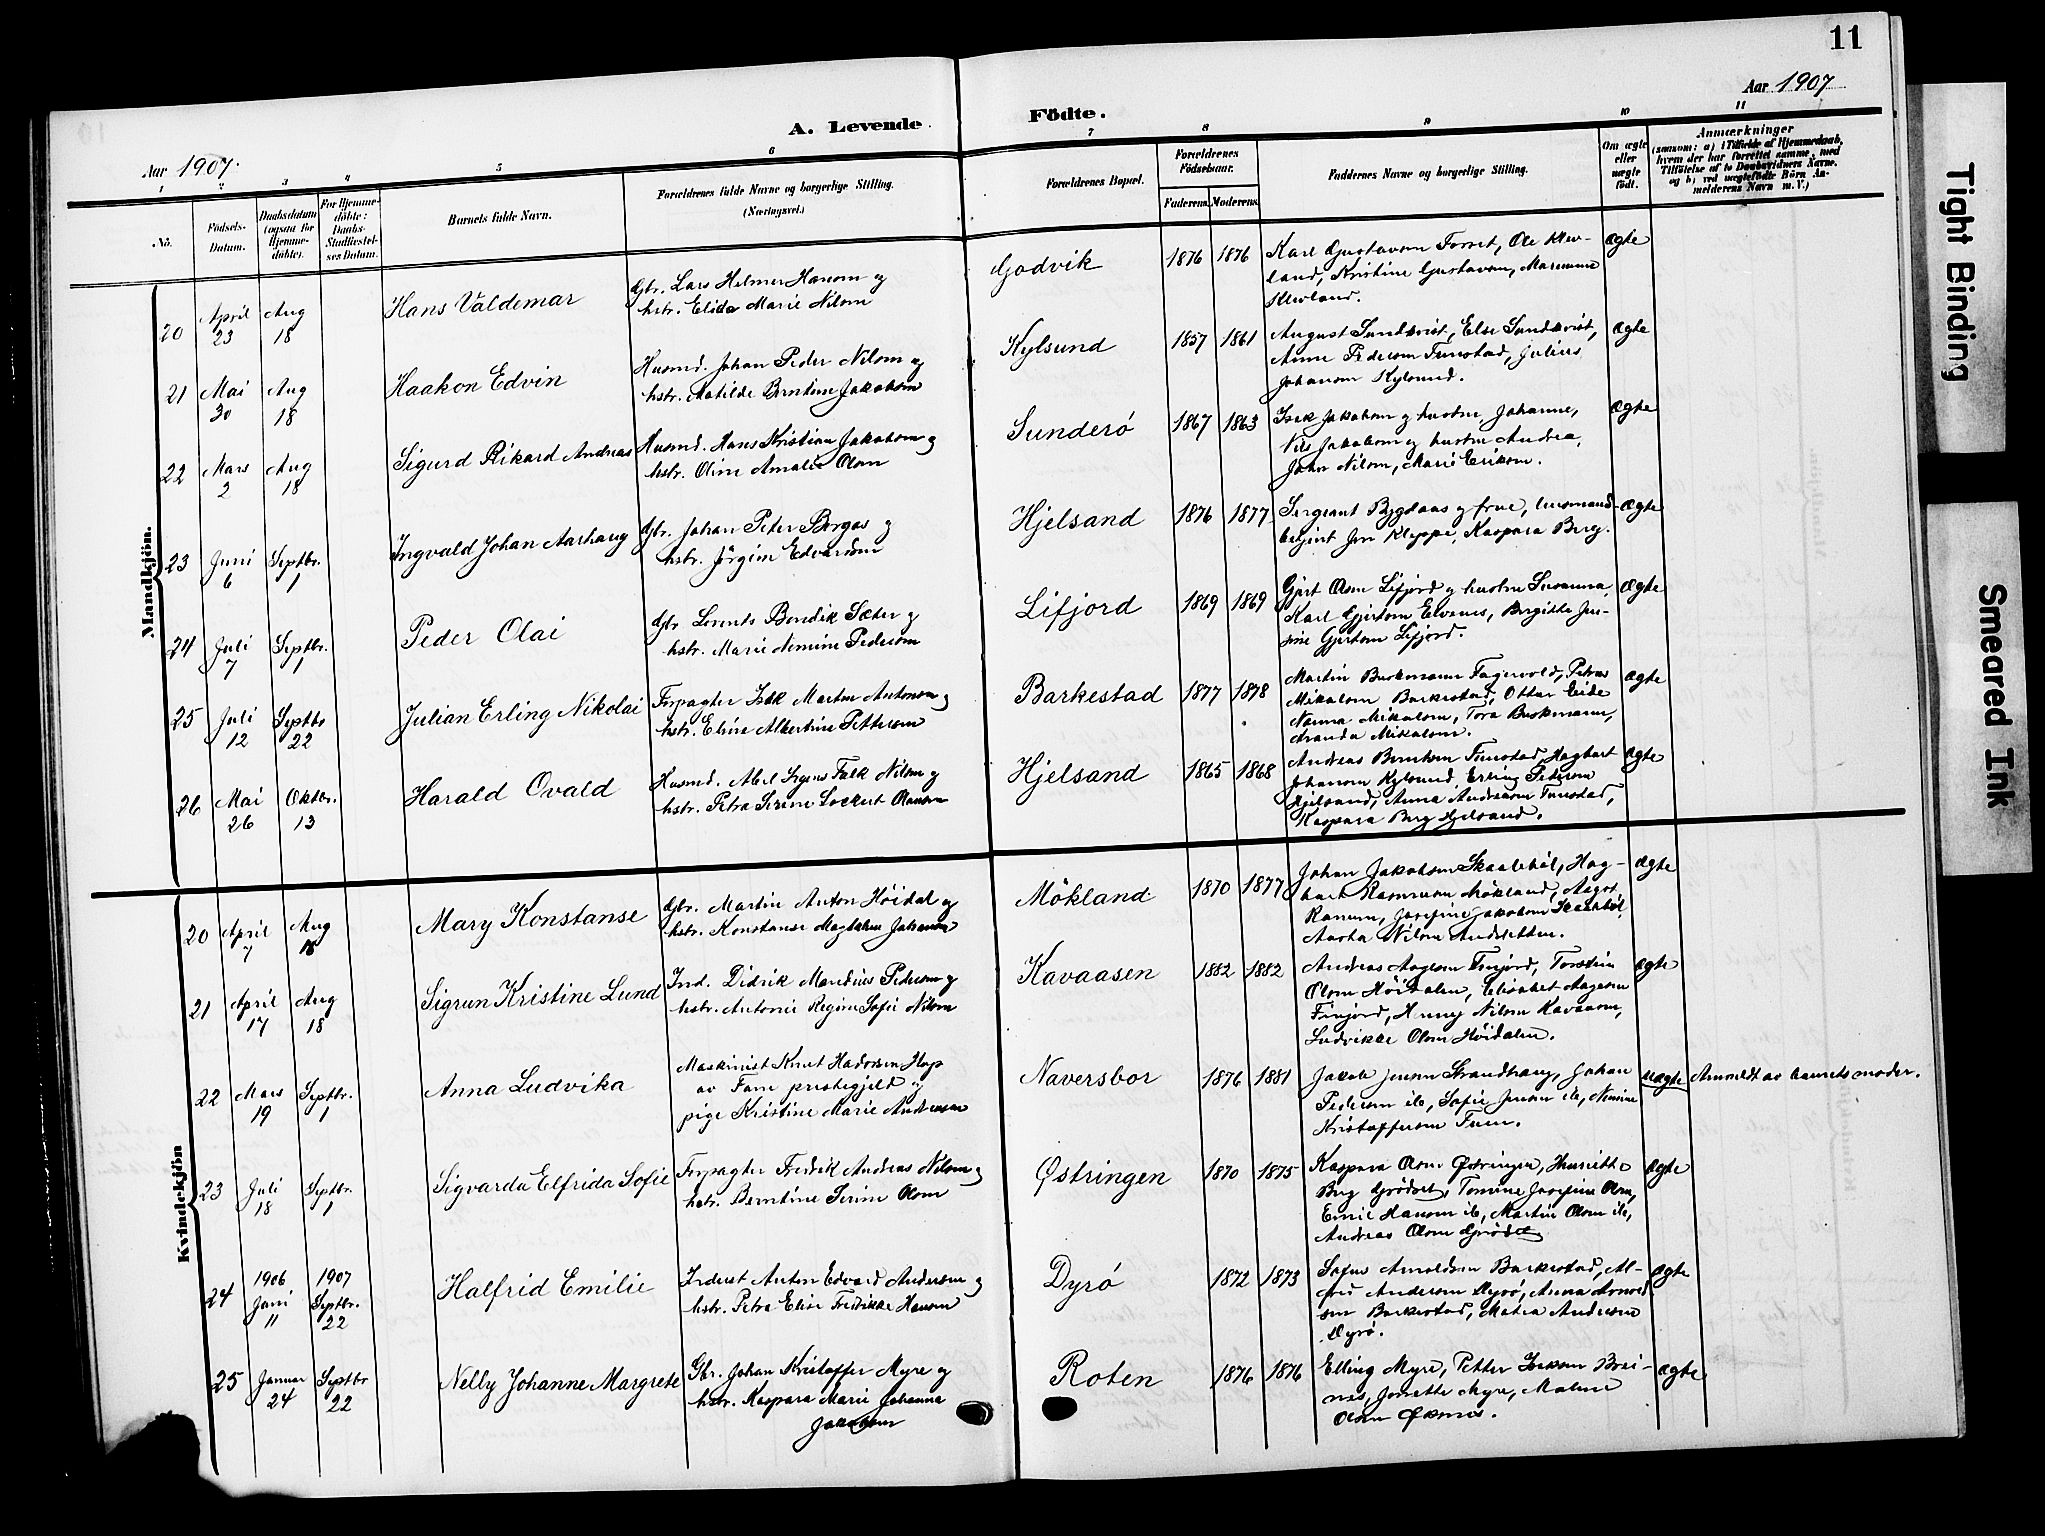 11
Aar 1907
A. Levende Födte.
Aar 1907.
1 2 3 4 5 6 7 8 9 10 11
No.
Födsels-
Datum.
Daabsdatum
(ogsaa for
Hjemme-
döbte).
For Hjemme-
döbte:
Daabs-
Stadfæstel-
ses Datum.
Barnets fulde Navn.
Forældrenes fulde Navne og borgerlige Stilling.
(Næringsvei.)
Forældrenes Bopæl.
Forældrenes
Födselsaar.
Faderens. Moderens.
Faddernes Navne og borgerlige Stilling.
Om ægte
eller
uægte
født.
Anmærkninger
(saasom: a) i Tilfælde af Hjemmedaab,
hvem der har forrettet samme, med
Tilföielse af to Daabsvidners Navne.
og b) ved uægtefödte Börn An-
melderens Navn m. V.)
Mandkjön.
20 April 23 Aug 18 Hans Valdemar
Gbr. Lars Helmer Hansen og
hstr. Elida Marie Nilsen
Godvik 1876 1876
Karl Gustavsen Forret, Ole Klev-
land, Kristine Gustavsen, Marianne
Klevland.
ægte
21 Mai 30 Aug 18 Haakon Edvin
Husmd. Johan Peder Nilsen og
hstr. Matilde Berntine Jakobsen
Kylsund 1857 1861
August Sundkvist, Else Sundkvist,
Anne Pedersen Tunstad, Julius
Johansen Kylsund.
ægte
22 Mars 2 Aug 18 Sigurd Rikard Andreas
Husmd. Hans Kristian Jakobsen og
hstr. Oline Amalie Olsen
Sunderö 1867 1863
Isak Jakobsen og hustru Johanne,
Nils Jakobsen og hustru Andrea,
Johan Nilsen, Marie Eriksen.
ægte
23 Juni 6 Septbr. 1 Ingvald Johan Aarhaug
Gbr. Johan Peter Borgos og
hstr. Jörgine Edvardsen
Hjelsand 1876 1877
Sergeant Bygdaas og frue, lensmand-
betjent Jen Kleppe, Kaspara Berg.
ægte
24 Juli 7 Septbr. 1 Peder Olai
Gbr Lorents Bendik Sæter og
hstr. Marie Nemine Pedersen
Lifjord 1869 1869
Gjert Olsen Lifjord og hustru Susanna,
Karl Gjertsen Elvenes, Bergitte Jen-
sine Gjertsen Lifjord.
ægte
25 Juli 12 Septbr 22 Julian Erling Nikolai
Forpagter Isak Martin Antonsen og
hstr. Eline Albertine Pettersen
Barkestad 1877 1878
Martin Buckmann Fagervold, Petrus
Mikalsen Barkestad, Ottar Eide
Nanna Mikalsen, Tora Buckmann,
Aranda Mikalsen.
ægte
26 Mai 26 Oktbr. 13 Harald Ovald
Husmd. Abel Irgens Falk Nilsen og
hstr. Petra Serine Lockert Olausen
Hjelsand 1865 1868
Andreas Berntsen Tunstad, Hagbart
Johansen Kylsund, Erling Pedersen
Hjelsand, Anna Andreasen Tunstad,
Kaspara Berg Hjelsand.
ægte
Kvindekjön
20 April 7 Aug 18 Mary Konstanse
Gbr. Martin Anton Höidal og
hstr. Konstanse Magdalena Johansen
Mökland 1870 1877
Johan Jakobsen Skaaleböl, Hag-
bart Rasmusen Mökland, Aagot
Ranum, Josefine Jakobsen Skaaleböl,
Aasta Nilsen
ægte
21 April 17 Aug 18 Sigrun Kristine Lund
Ind. Didrik Mandrius Pedersen og
hstr. Antonie Regine Sofie Nilsen
Kavaasen 1882 1882
Andreas Aagesen Finjord, Torstein
Olsen Höidalen, Elisabet Aagesen
Finjord, Henny Nilsen Kavaasen,
Ludvikke Olsen Höidalen.
ægte
22 Mars 19 Septbr. 1 Anna Ludvika
Maskinist Knut Hadorsen Hop
av Fane prestegjeld og
pige Kristine Marie Andersen
Naversbor 1876 1881
Jakob Jensen Strandhaug, Johan
Pedersen ib, Sofie Jensen ib, Nimine
Kristoffersen Tuen.
uægte Anmeldt av barnets moder.
23 Juli 18 Septbr. 1 Sigvarda Elfrida Sofie
Forpagter Fredrik Andreas Nilsen og
hstr. Berntine Serine Olsen
Østringen 1870 1875
Kaspara Olsen Østringen, Henriette
Berg Grödset, Tomine Josefine Olsen,
Emil Hansen ib, Martin Olsen ib,
Andreas Olsen Grödset
ægte
24 1906 Juni 11 1907 Septbr. 22 Halfrid Emilie
Inderst Anton Edvard Andersen og
hstr. Petra Elise Fredrikke Hansen
Dyrö 1872 1873
Sofus Arnoldsen Barkestad, Al-
fred Andersen Dyrö, Anna Arnold
sen Barkestad, Matea Andersen
Dyrö.
ægte
25 Januar 24 Septbr 22 Nelly Johanne Margrete
Gbr. Johan Kristoffer Myre og
hstr. Kaspara Marie Johanna
Jakobsen
Roten 1876 1876
Elling Myre, Petter Isaksen Brei-
nes, Jonette Myre, Malene
Olsen Øksnes.
ægte
Tight Binding
Smeared Ink